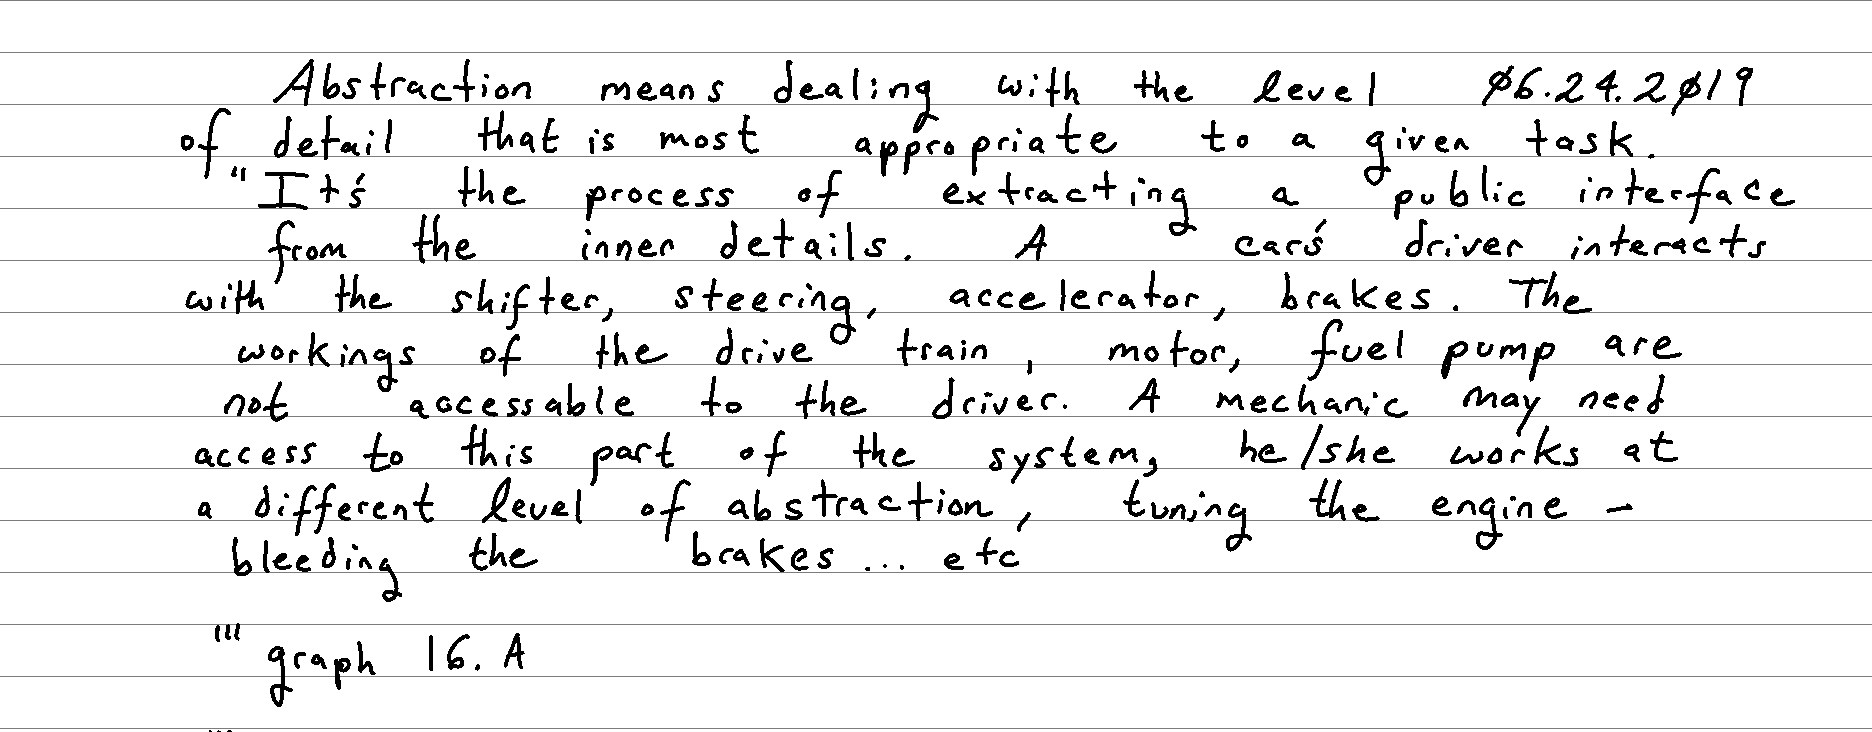 Abstraction means dealing with the level ø6.24.2ø19
of detail that is most appropriate to a given task.
"It's the process of extracting a public interface
from the inner details. A car's driver interacts
with the shifter, steering, accelerator, brakes. The
workings of the drive train, motor, fuel pump are
not accessable to the driver. A mechanic may need
access to this part of the system, he/she works at
a different level of abstraction, tuning the engine -
bleeding the brakes... etc
"' graph 16. A